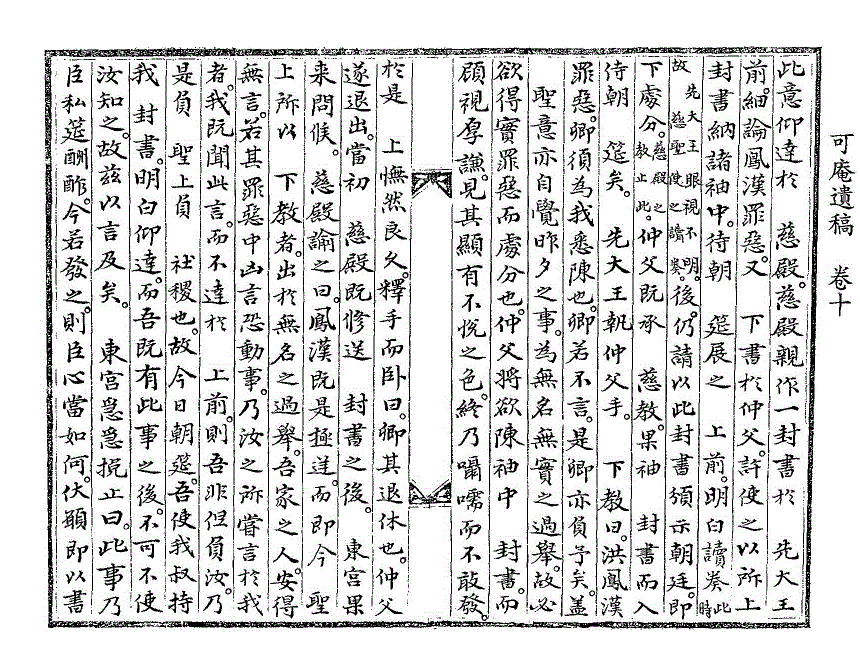 可庵遺稿 卷十
此意仰達於 慈殿慈殿親作一封書於 先大王
前細論鳳漢罪惡又 下書於仲父許使之以所上
封書納諸袖中待朝 筵展之 上前明白讀奏此時
故先大王眼視不明慈聖使之讀奏後仍請以此封書頒示朝廷即
下處分慈殿之教止此仲父既承 慈教果袖 封書而入
侍朝 筵矣 先大王執仲父手 下教曰洪鳳漢
罪惡卿須為我悉陳也卿若不言是卿亦負予矣盖
聖意亦自覺昨夕之事為無名無實之過舉故必
欲得實罪惡而處分也仲父將欲陳袖中 封書而
顧視厚謙見其顯有不悅之色終乃囁嚅而不敢發
於是 上憮然良久釋手而卧曰卿其退休也仲父
遂退出當初 慈殿既修送 封書之後 東宮果
来問候 慈殿論之曰鳳漢既是極逆而即今 聖
上所以 下教者出於無名之過舉吾家之人安得
無言若其罪惡中凶言恐動事乃汝之所嘗言於我
者我既聞此言而不達於 上前則吾非但負汝乃
是負 聖上負 社稷也故今日朝筵吾使我叔持
我 封書明白仰達而吾既有此事之後不可不使
汝知之故茲以言及矣 東宮急急挽止曰此事乃
臣私筵酬酢今若發之則臣心當如何伏願即以書